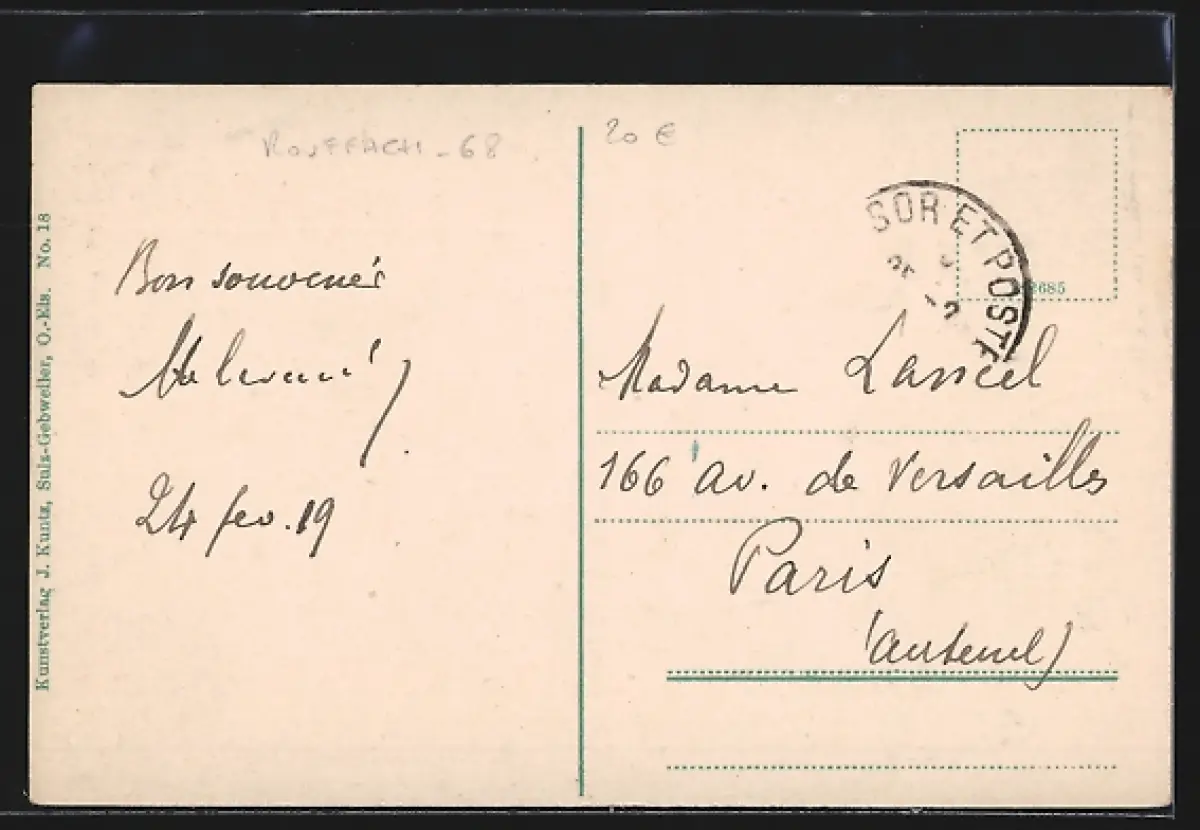 ROUFFACH - 68
20 €
Kunstverlag J. Kuntz, Sulz-Gebweiler, O.-Els. No. 18
Bon souvenir
24 fev. 19
SOR ET POSTE
2685
Madame Lancel
166 av. de Versailles
Paris
(Auteuil)